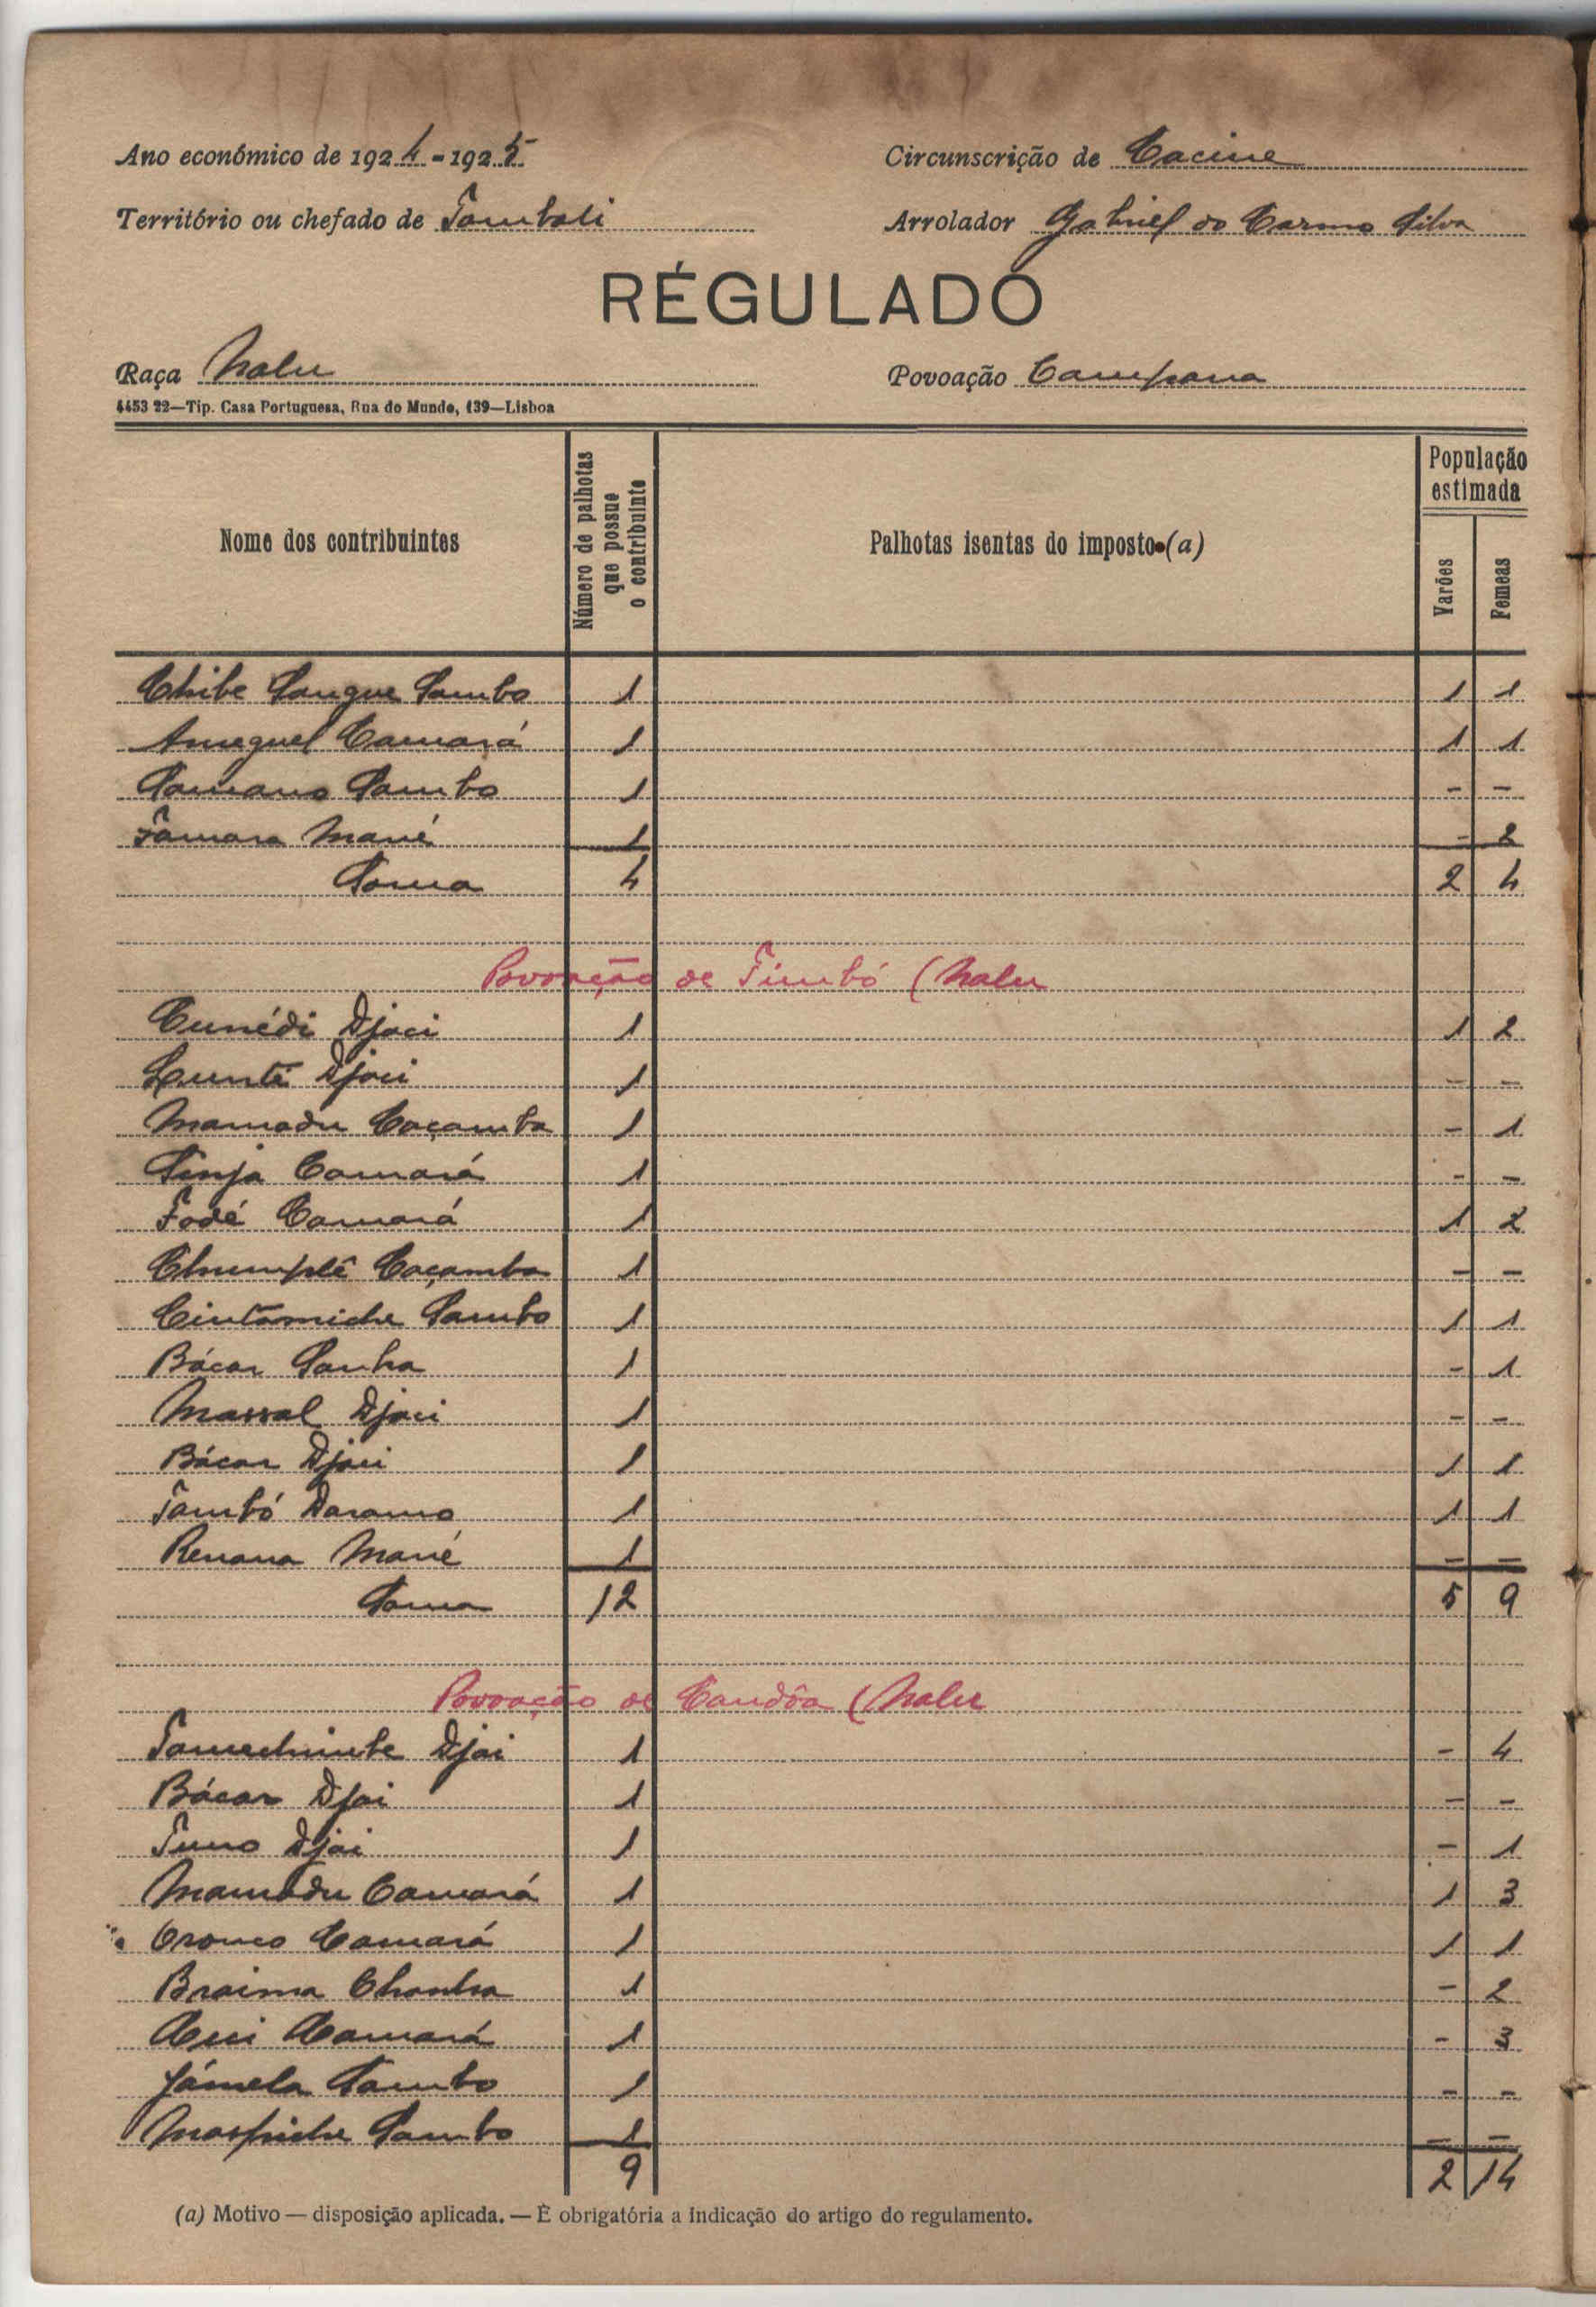 Ano económico de 1924-1925 Circunscrição de Cacine
Território ou chefado de Tombali Arrolador Gabriel do Carmo Silva
RÉGULADO
Raça Nalu Povoação Campana
4453 22—Tip. Casa Portuguesa, Rua do Mundo, 139—Lisboa
Nome dos contribuintes Número de palhotas que possue o contribuinte Palhotas isentas do imposto (a) População estimada Varões Femeas
Chibe Sangue Sambo 1 1 1
Ameguel Camará 1 1 1
Samano Sambo 1 - -
Tamara Mané 1 - 2
Soma 4 2 4
Povoação de Timbó (Nalu
Cunédi Djaci 1 1 2
Lunté Djaci 1 - -
Mamadu Caçamba 1 - 1
Sinja Camará 1 - -
Fodé Camará 1 1 2
Chumplê Caçamba 1 - -
Cintamiche Sambo 1 1 1
Bácar Sanha 1 - 1
Massal Djaci 1 - -
Bácar Djaci 1 1 1
Tambó Daramo 1 1 1
Renana Mané 1 - -
Soma 12 5 9
Povoação de Candôa (Nalu
Tamechimbe Djai 1 - 4
Bácar Djai 1 - -
Tumo Djai 1 - 1
Mamadu Camará 1 1 3
Oronco Camará 1 1 1
Braima Chanha 1 - 2
Camará 1 - 3
Jámela Sambo 1 - -
Maspiche Sambo 1 - -
9 2 14
(a) Motivo — disposição aplicada. — É obrigatória a indicação do artigo do regulamento.